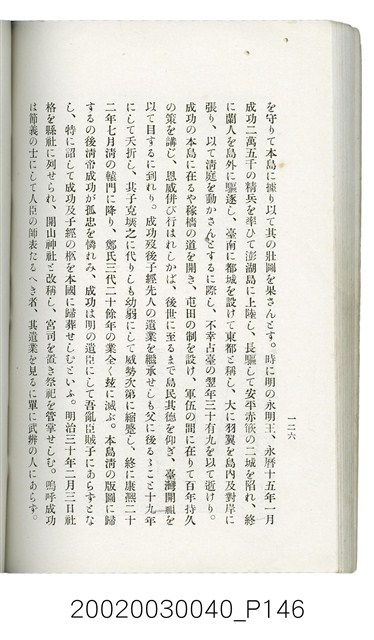 を守りて本島に據り以て其の壯圖を果さんとす。時に明の永明王、永曆十五年一月
成功二萬五千の精兵を率ひて澎湖島に上陸し、長驅して安平赤嵌の二城を陷れ、終
に蘭人を島外に驅逐し、臺南に都城を設けて東都と稱し、大に羽翼を島內及對岸に
張り、以て清庭を動かさんとするに際し、不幸占臺の翌年三十有九を以て逝けり。
成功の本島に在るや稼穡の道を開き、屯田の制を設け、軍伍の間に在りて百年持久
の策を講じ、恩威併び行はれしかば、後世に至るまで島民其德を仰ぎ、臺灣開祖を
以て目するに到れり。成功歿後子經先人の遺業を繼承せしも父に後るゝこと十九年
にして夭折し、其子克塽之に代りしも幼弱にして威勢次第に縮蹙し、終に康熙二十
二年七月淸の轅門に降り、鄭氏三代二十餘年の業全く玆に滅ぶ。本島淸の版圖に歸
するの後淸帝成功が孤忠を憐れみ、成功は明の遺臣にして吾亂臣賊子にあらすとな
し、特に詔して成功及子經の柩を本國に歸葬せしむといふ。明治三十年二月三日社
格を縣社に列せられ、開山神社と改稱し、宮司を置き祭祀を管掌せしむ。嗚呼成功
は節義の士にして人臣の師表たるへき者、其遺業を見るに單に武辨の人にあらす。
一二六
20020030040_P146